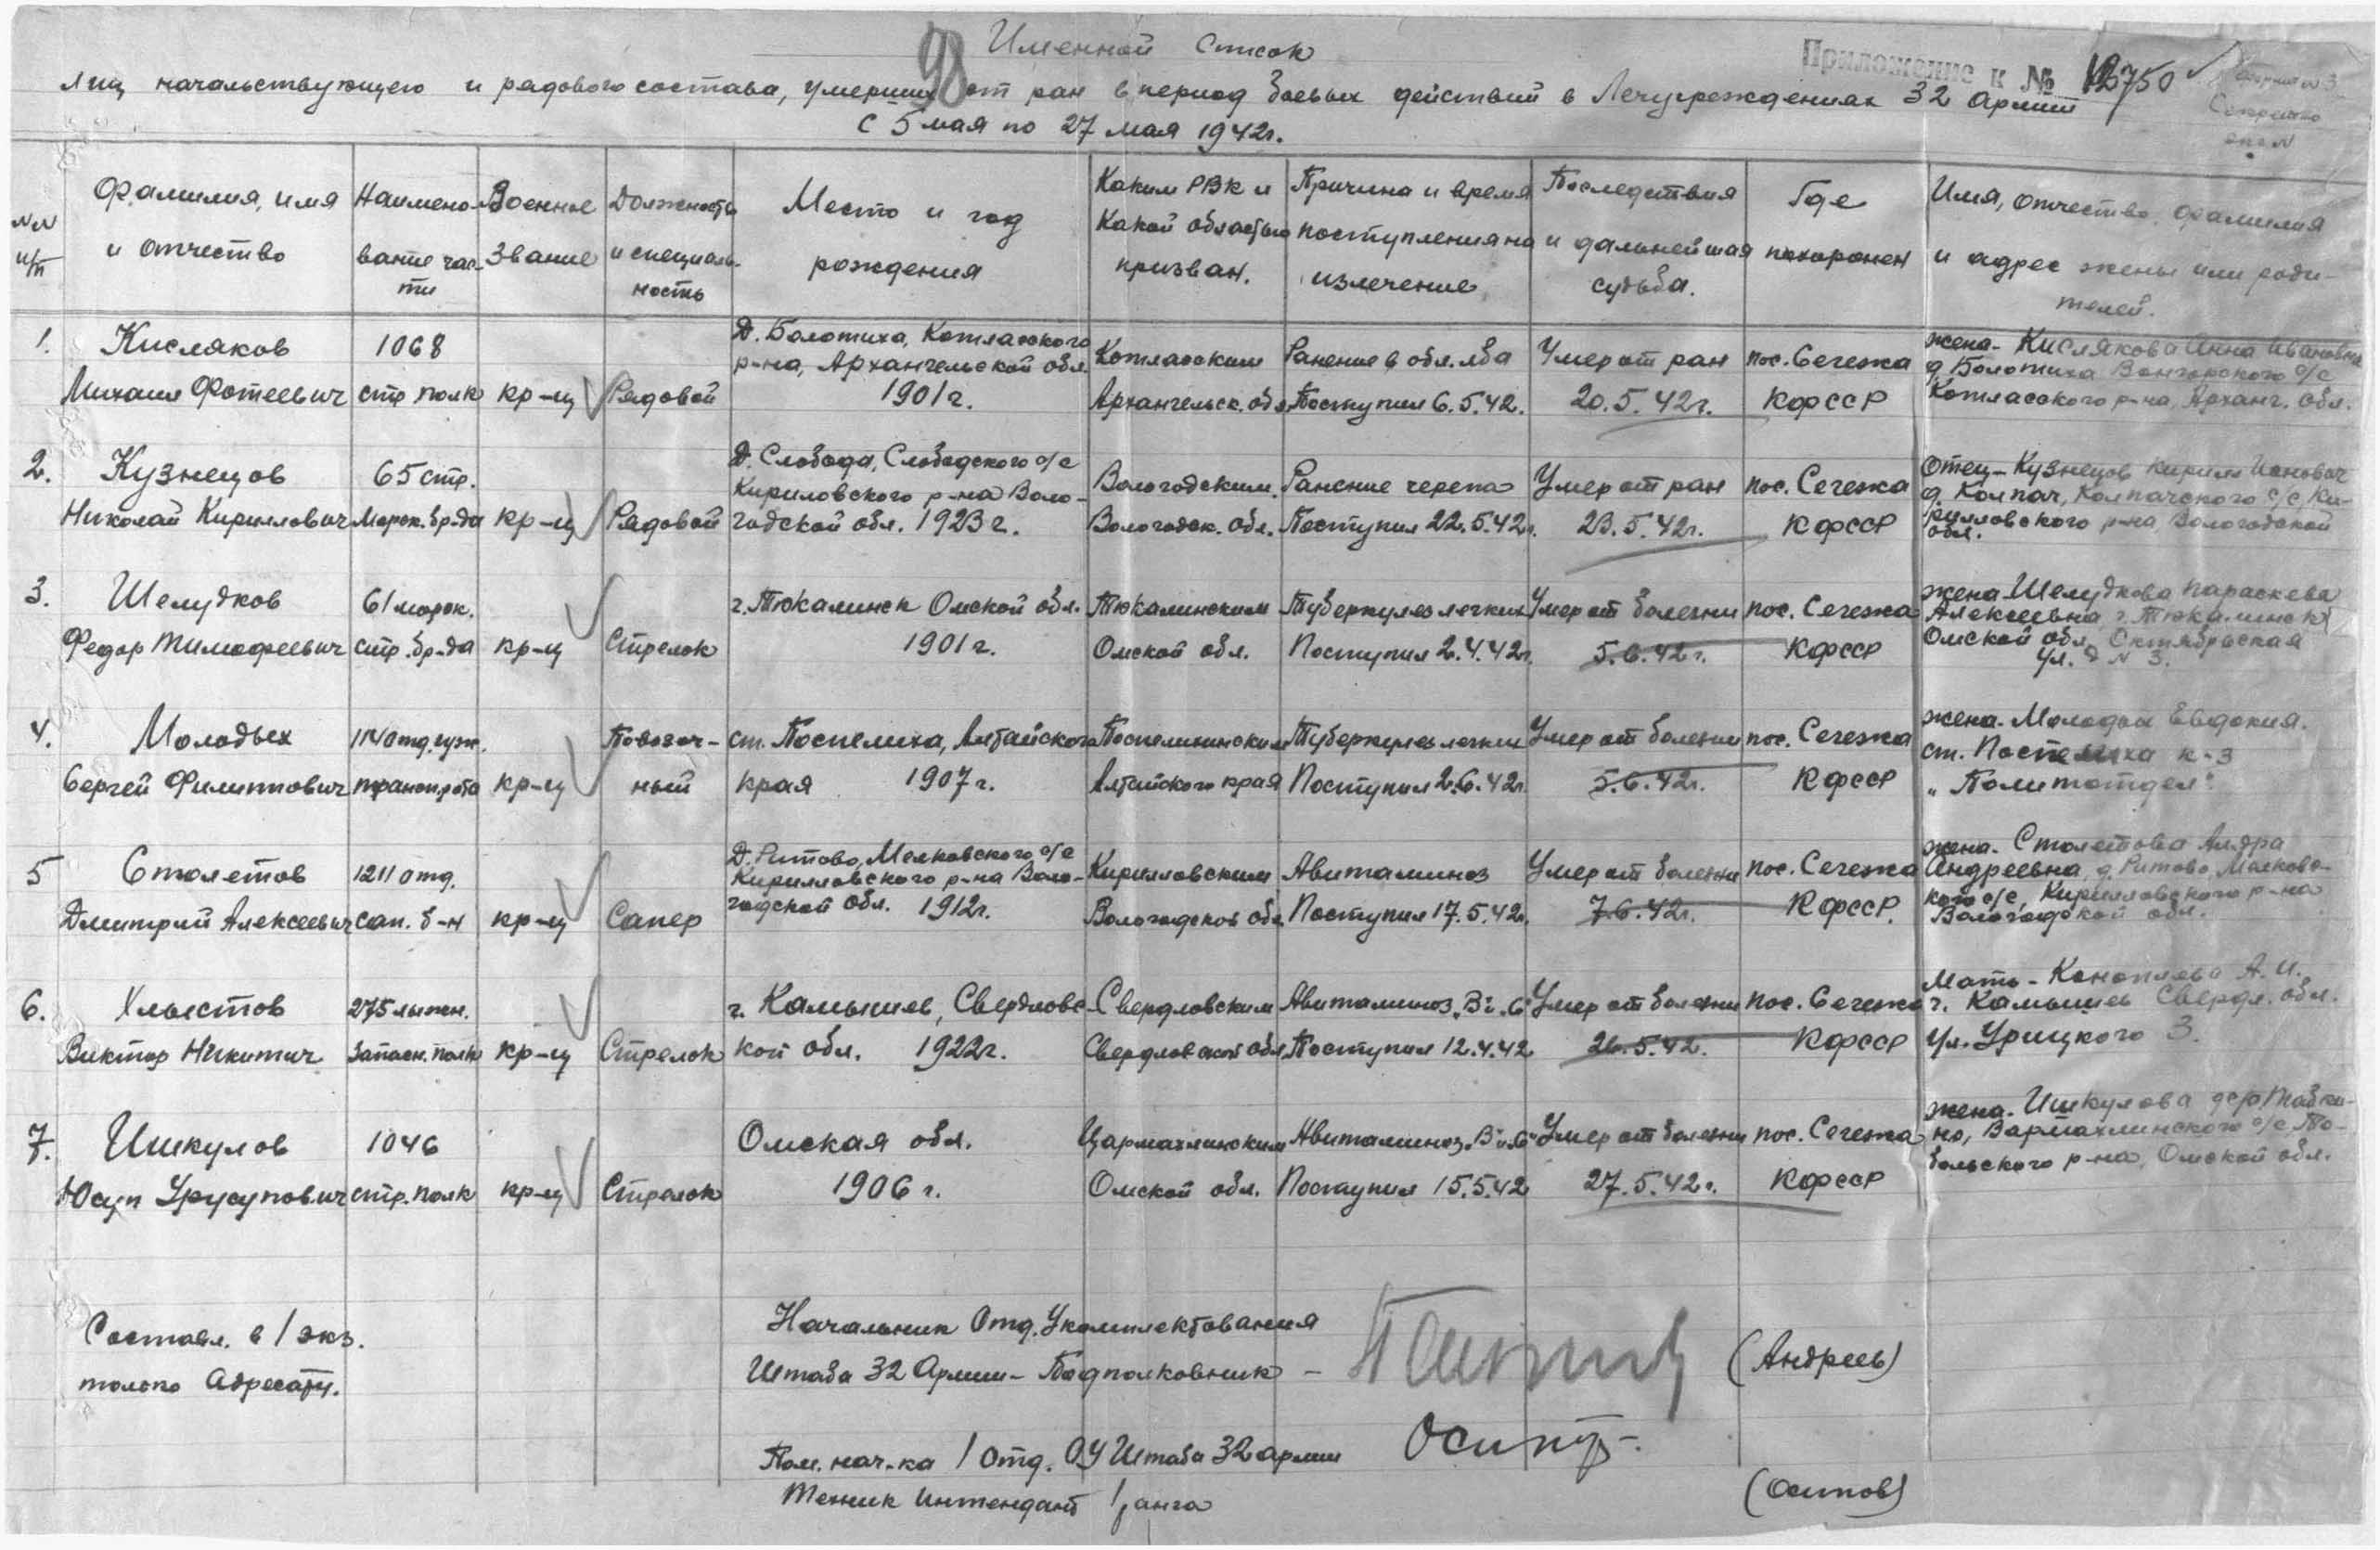 98
Именной список
Приложение к № 12750
лиц начальствующего и рядового состава, умерших от ран в период боевых действий в Лечучреждениях 32 Армии
с 5 мая по 27 мая 1942г.
Форма №3
Секретно
экз. №
№№ п/п
Фамилия, имя и отчество
Наименование части
Военное звание
Должность и специальность
Место и год рождения
Каким РВК и какой областью призван.
Причина и время поступления на излечение
Последствия и дальнейшая судьба.
Где похоронен
Имя, отчество, фамилия и адрес жены или родителей.
1. Кисляков Михаил Фотеевич
1068 стр. полк
кр-ц
Рядовой
Д. Болотиха, Котласского р-на, Архангельской обл. 1901г.
Котласским Архангельск. обл.
Ранение в обл. лба Поступил 6.5.42.
Умер от ран 20.5.42г.
пос. Сегежа КФССР
жена - Кислякова Анна Ивановна д. Болотиха Вонгорского с/с Котласского р-на, Арханг. обл.
2. Кузнецов Николай Кириллович
65 стр. Морск. бр-да
кр-ц
Рядовой
Д. Слобода, Слободского с/с Кирилловского р-на Вологодской обл. 1923г.
Вологодским. Вологодск. обл.
Ранение черепа Поступил 22.5.42г.
Умер от ран 23.5.42г.
пос. Сегежа КФССР
Отец - Кузнецов Кирилл Ионович д. Колпач, Колпачского с/с Кирилловского р-на, Вологодской обл.
3. Шелудков Федор Тимофеевич
61 морск. стр. бр-да
кр-ц
Стрелок
г. Тюкалинск Омской обл. 1901г.
Тюкалинским Омской обл.
Туберкулез легких Поступил 2.4.42г.
Умер от болезни 5.6.42г.
пос. Сегежа КФССР
жена Шелудкова Параскева Алексеевна г. Тюкалинск Омской обл. Октябрьская ул. д N 3.
4. Молодых Сергей Филиппович
1140 отд. гуж. трансп. рота
кр-ц
Повозочный
ст. Поспелиха, Алтайского края 1907г.
Поспелихинским Алтайского края
Туберкулез легких Поступил 2.6.42г.
Умер от болезни 5.6.42г.
пос. Сегежа КФССР
жена - Молодых Евдокия. ст. Поспелиха к-з „Политотдел".
5 Столетов Дмитрий Алексеевич
1211 отд. сап. б-н
кр-ц
Сапер
Д. Ритово, Мелковского с/с Кирилловского р-на Вологодской обл. 1912г.
Кирилловским Вологодской обл.
Авитаминоз Поступил 17.5.42г.
Умер от болезни 7.6.42г.
пос. Сегежа КФССР.
жена - Столетова Ал-дра Андреевна д. Ритово, Мелковского с/с, Кирилловского р-на Вологодской обл.
6. Хлыстов Виктор Никитич
275 лыжн. запасн. полк
кр-ц
Стрелок
г. Камышлев, Свердловской обл. 1922г.
Свердловским Свердловской обл.
Авитаминоз „В" и „С" Поступил 12.4.42
Умер от болезни 26.5.42.
пос. Сегежа КФССР
Мать - Коноплева А.И. г. Камышлев Свердл. обл. ул. Урицкого 3.
7. Ишкулов Юсуп Урусупович
1046 стр. полк
кр-ц
Стрелок
Омская обл. 1906г.
Омской обл.
Авитаминоз „В" и „С" Поступил 15.5.42
Умер от болезни 27.5.42г.
пос. Сегежа КФССР
жена - Ишкулова Вармахлинского с/с, Тобольского р-на, Омской обл.
Составл. в 1 экз.
только Адресату.
Начальник Отд. Укомплектования
Штаба 32 Армии - Подполковник - (Андреев)
Пом. нач-ка 1 Отд. ОУ Штаба 32 армии
Техник Интендант 1 ранга (Осипов)